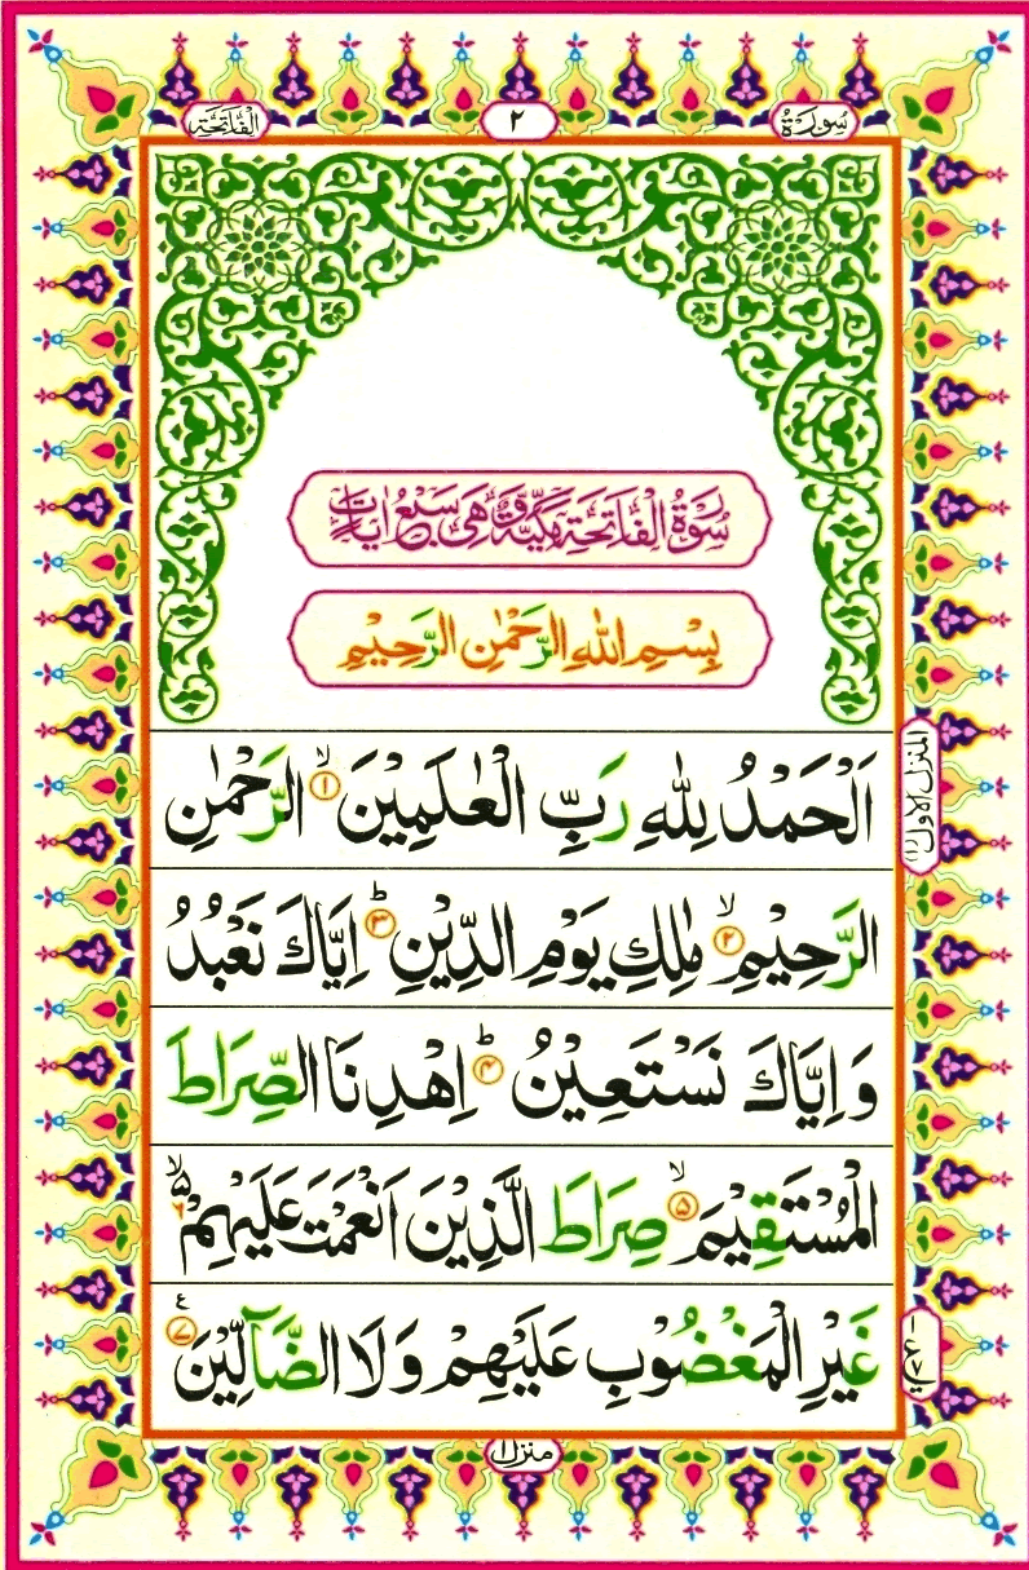 سُورَةُ
٢
الْفَاتِحَة
سُوْرَةُ الْفَاتِحَةِ مَكِّيَّةٌ وَّهِىَ سَبْعُ اٰيَاتٍ
بِسْمِ اللهِ الرَّحْمٰنِ الرَّحِيْمِ
اَلْحَمْدُ لِلّٰهِ رَبِّ الْعٰلَمِيْنَ ۙ﴿۱﴾ الرَّحْمٰنِ
الرَّحِيْمِ ۙ﴿۲﴾ مٰلِكِ يَوْمِ الدِّيْنِ ؕ﴿۳﴾ اِيَّاكَ نَعْبُدُ
وَ اِيَّاكَ نَسْتَعِيْنُ ؕ﴿۴﴾ اِهْدِنَا الصِّرَاطَ
الْمُسْتَقِيْمَ ۙ﴿۵﴾ صِرَاطَ الَّذِيْنَ اَنْعَمْتَ عَلَيْهِمْ ۙ۵ ۶
غَيْرِ الْمَغْضُوْبِ عَلَيْهِمْ وَ لَا الضَّآلِّيْنَ ﴿۷﴾ ع
المنزل الاول (١)
منزل ١